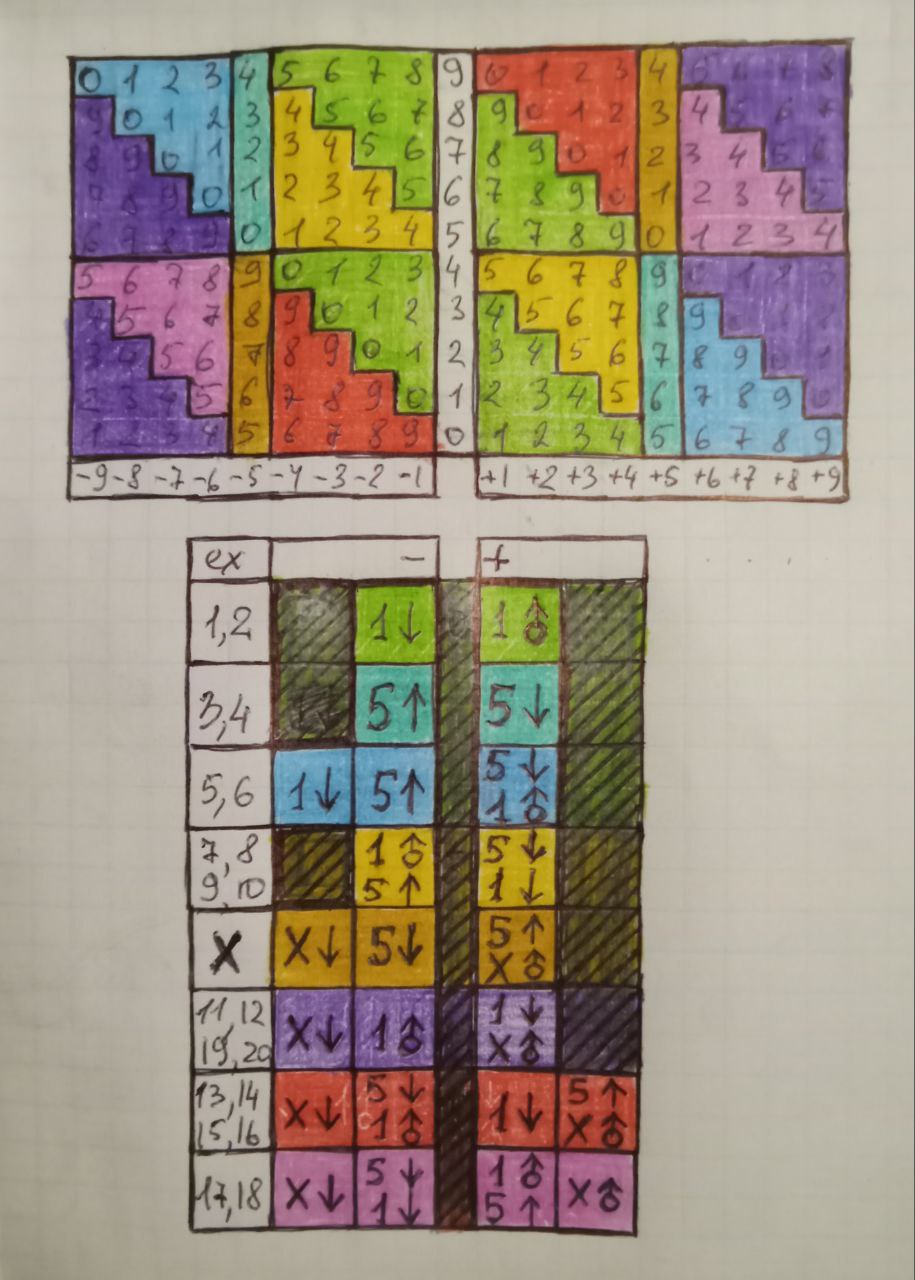 0 1 2 3 4 5 6 7 8 9 0 1 2 3 4 5 6 7 8
9 0 1 2 3 4 5 6 7 8 9 0 1 2 3 4 5 6 7
8 9 0 1 2 3 4 5 6 7 8 9 0 1 2 3 4 5 6
7 8 9 0 1 2 3 4 5 6 7 8 9 0 1 2 3 4 5
6 7 8 9 0 1 2 3 4 5 6 7 8 9 0 1 2 3 4
5 6 7 8 9 0 1 2 3 4 5 6 7 8 9 0 1 2 3
4 5 6 7 8 9 0 1 2 3 4 5 6 7 8 9 0 1 2
3 4 5 6 7 8 9 0 1 2 3 4 5 6 7 8 9 0 1
2 3 4 5 6 7 8 9 0 1 2 3 4 5 6 7 8 9 0
1 2 3 4 5 6 7 8 9 0 1 2 3 4 5 6 7 8 9
-9 -8 -7 -6 -5 -4 -3 -2 -1 +1 +2 +3 +4 +5 +6 +7 +8 +9
ex - +
1,2 1↓ 1
3,4 5↑ 5↓
5,6 1↓ 5↑ 5↓
1
7,8 1 5↓
9,10 5↑ 1↓
X X↓ 5↓ 5↑
X
11,12 X↓ 1 1↓
19,20 X
13,14 X↓ 5↓ 1↓ 5↑
15,16 1 X
17,18 X↓ 5↓ 1 X
1↓ 5↑